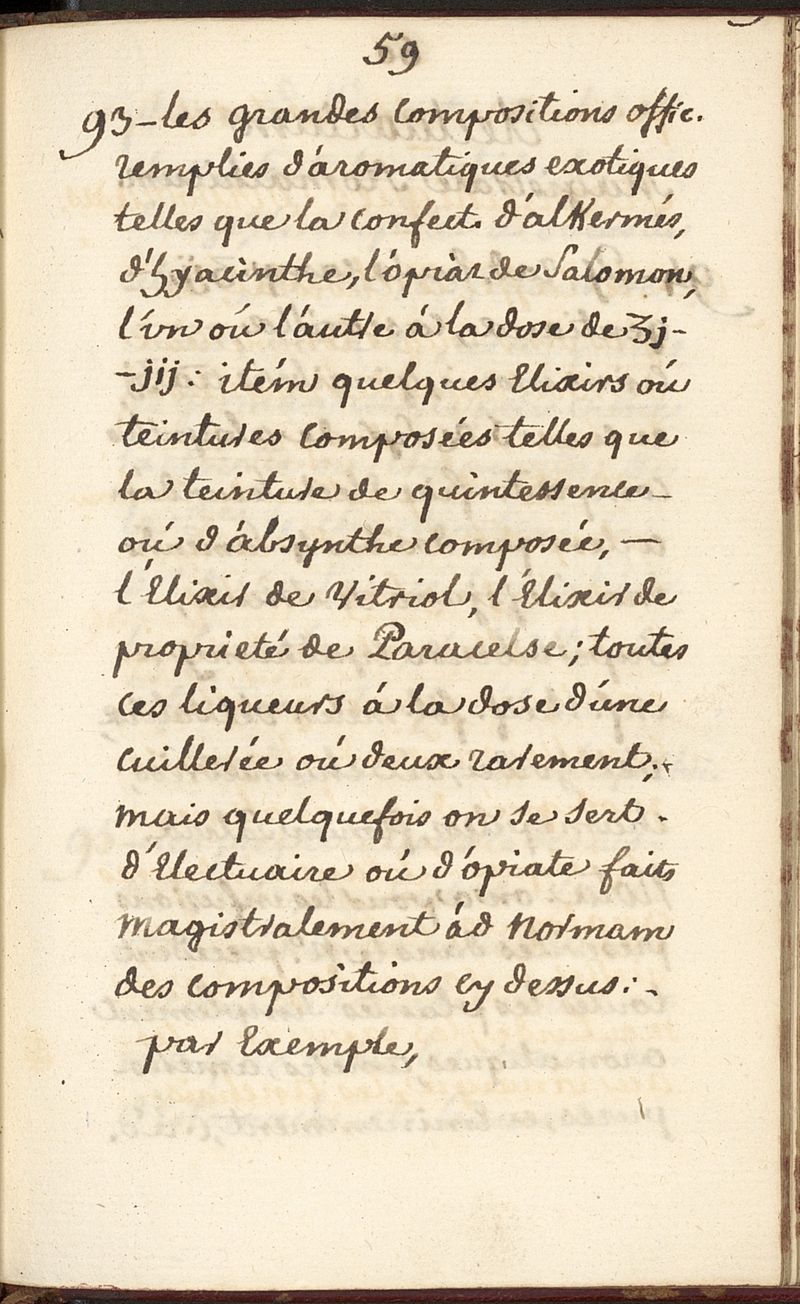 59
93-les grandes compositions offic.
remplies d'áromatiques exotiques
telles que la confect. d'alKermés,
d'hyacinthe, l'ópiat de Salomon,
l'vn oú l'áutre á la dose de ʒj-
-jij: itém quelques Elixirs oú
teintures composées telles que
la teinture de quintessence-
oú d'ábsynthe composée, —
l'Elixir de Vitriol, l'Elixir de
proprieté de Paracelse; toutes
ces liqueurs á la dose d'úne
cuillerée oú deux rarement;
mais quelquefois on se sert.
d'Electuaire oú d'ópiate faits
magistralement ád normam
des compositions cy dessus:-
par Exemple,